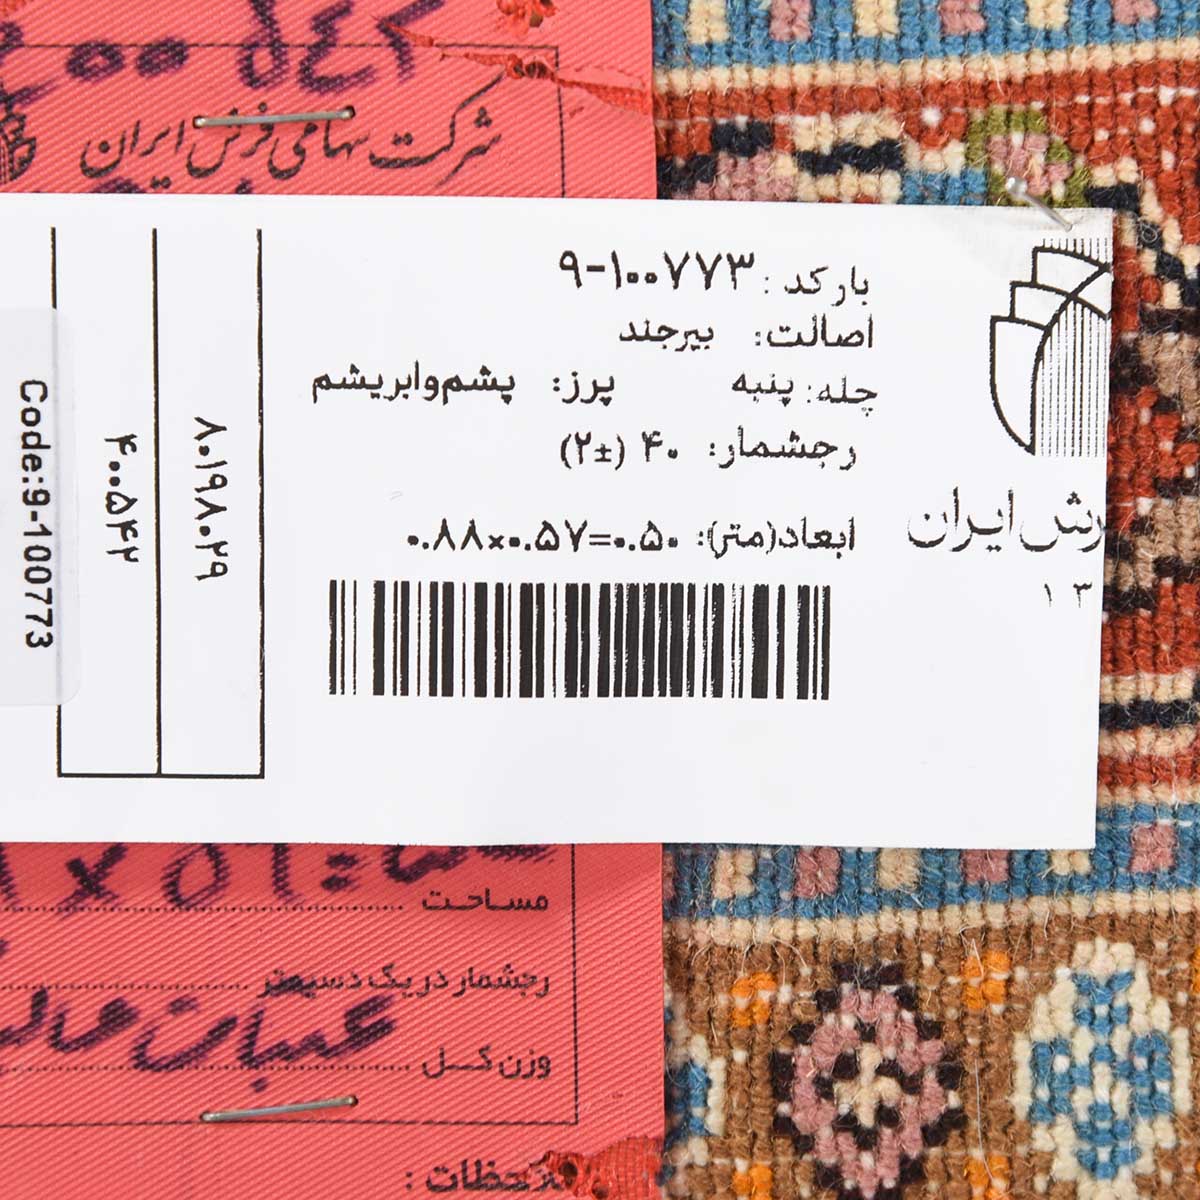 ۴۰۰۵۴۲
شرکت سهامی فرش ایران
بارکد: ۹-۱۰۰۷۷۳
اصالت: بیرجند
چله: پنبه پرز: پشم‌وابریشم
رجشمار: ۴۰ (±۲)
ابعاد(متر): ۰.۸۸×۰.۵۷=۰.۵۰
رش ایران
۱۳
۸۰۱۹۸۰۲۹
۴۰۰۵۴۲
Code:9-100773
مساحت
رجشمار در یک دسیمتر
وزن کل
ملاحظات :